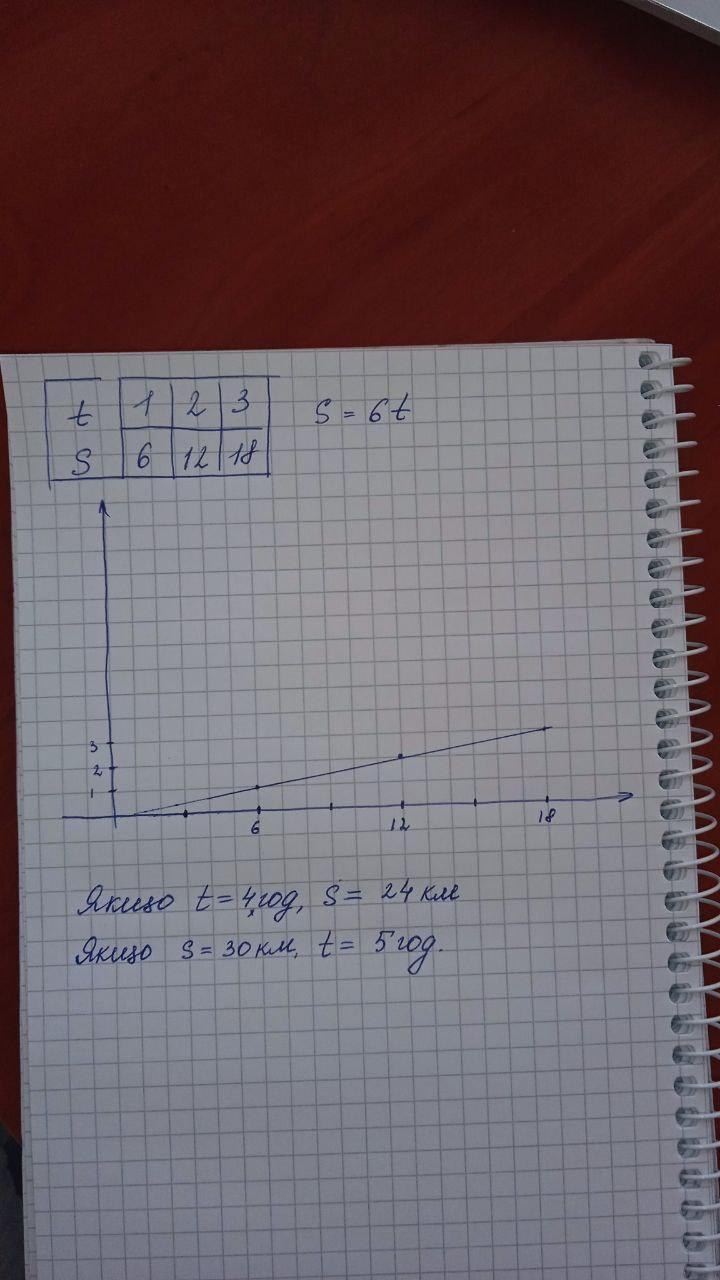 t 1 2 3
S 6 12 18
S = 6t
3
2
1
6 12 18
Якщо t = 4 год, S = 24 км
Якщо S = 30 км, t = 5 год.